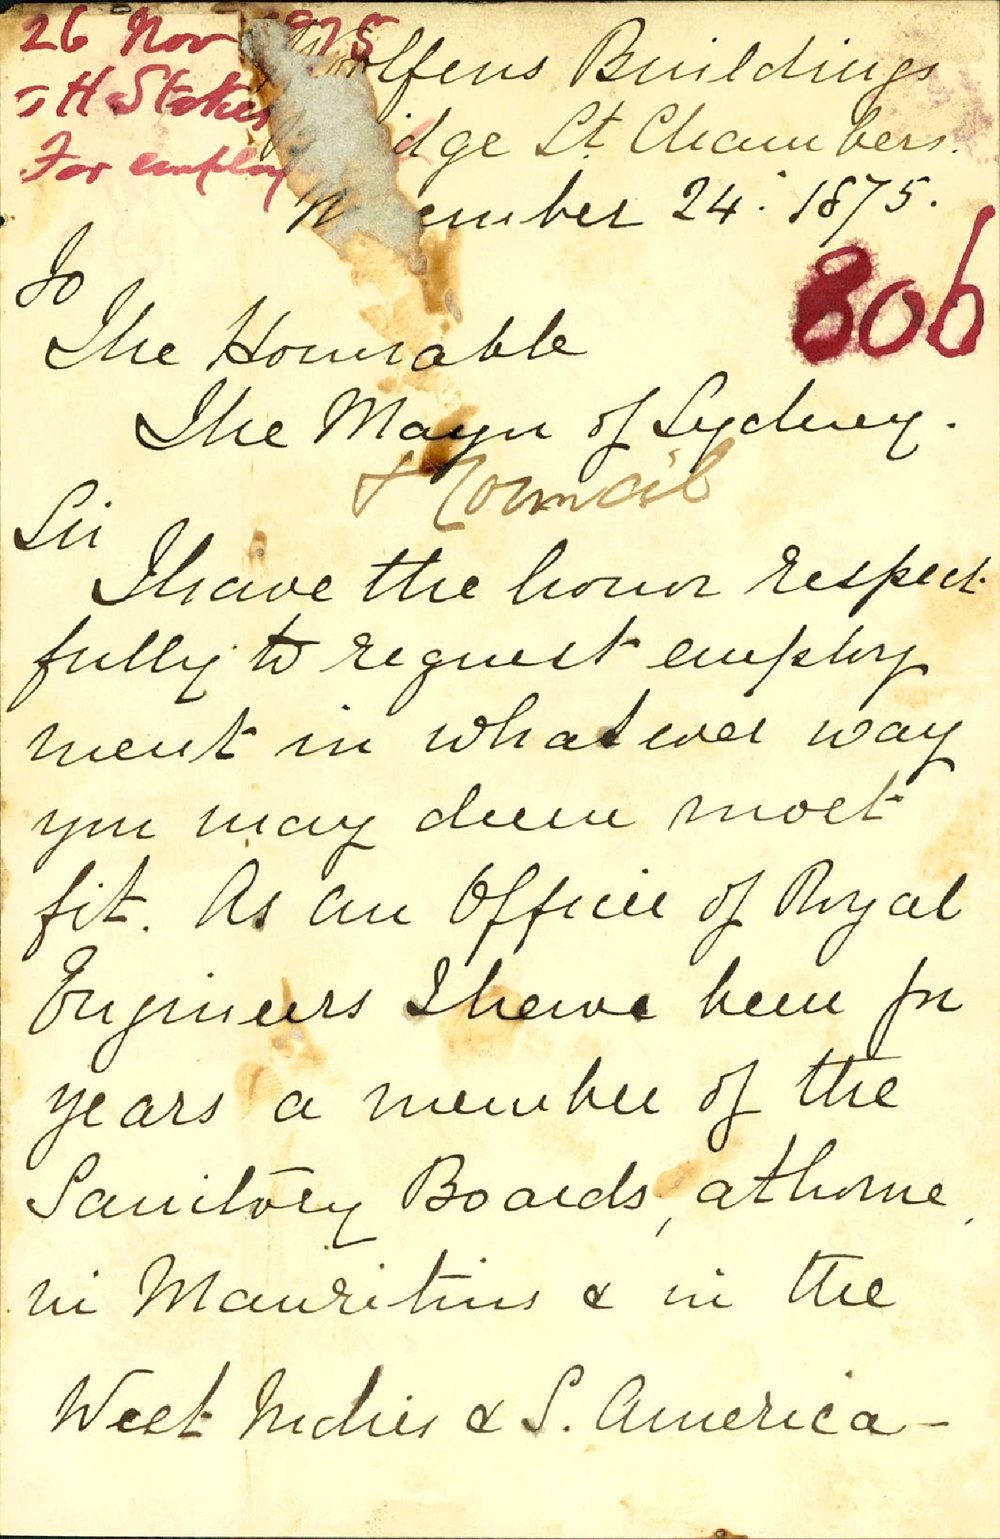 26 Nov 1875
H Stokes
For employ
Buildings
dge St Chambers.
ember 24. 1875.
806
To
The Honorable
The Mayor of Sydney.
& Council
Sir
I have the honor respect
fully to request employ
ment in whatever way
you may deem most
fit. As an Officer of Royal
Engineers I have been for
years a member of the
Sanitory Boards, at home,
in Mauritius & in the
West Indies & S. America -